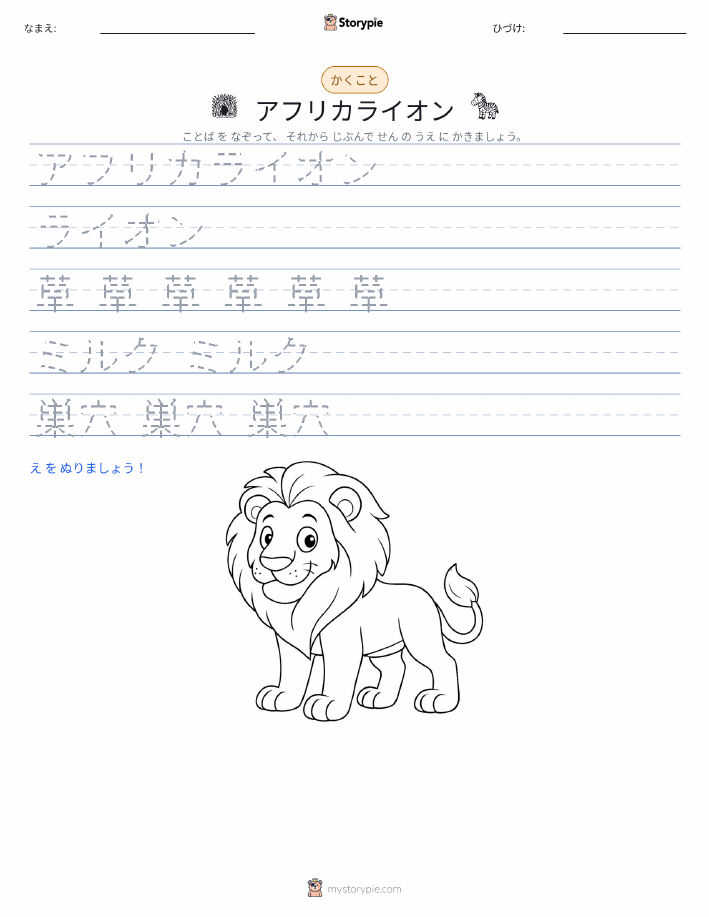 なまえ:
Storypie
ひづけ:
かくこと
アフリカライオン
ことば を なぞって、 それから じぶんで せん の うえ に かきましょう。
アフリカライオン
ライオン
草 草 草 草 草 草
ミルク ミルク
巣穴 巣穴 巣穴
え を ぬりましょう！
mystorypie.com